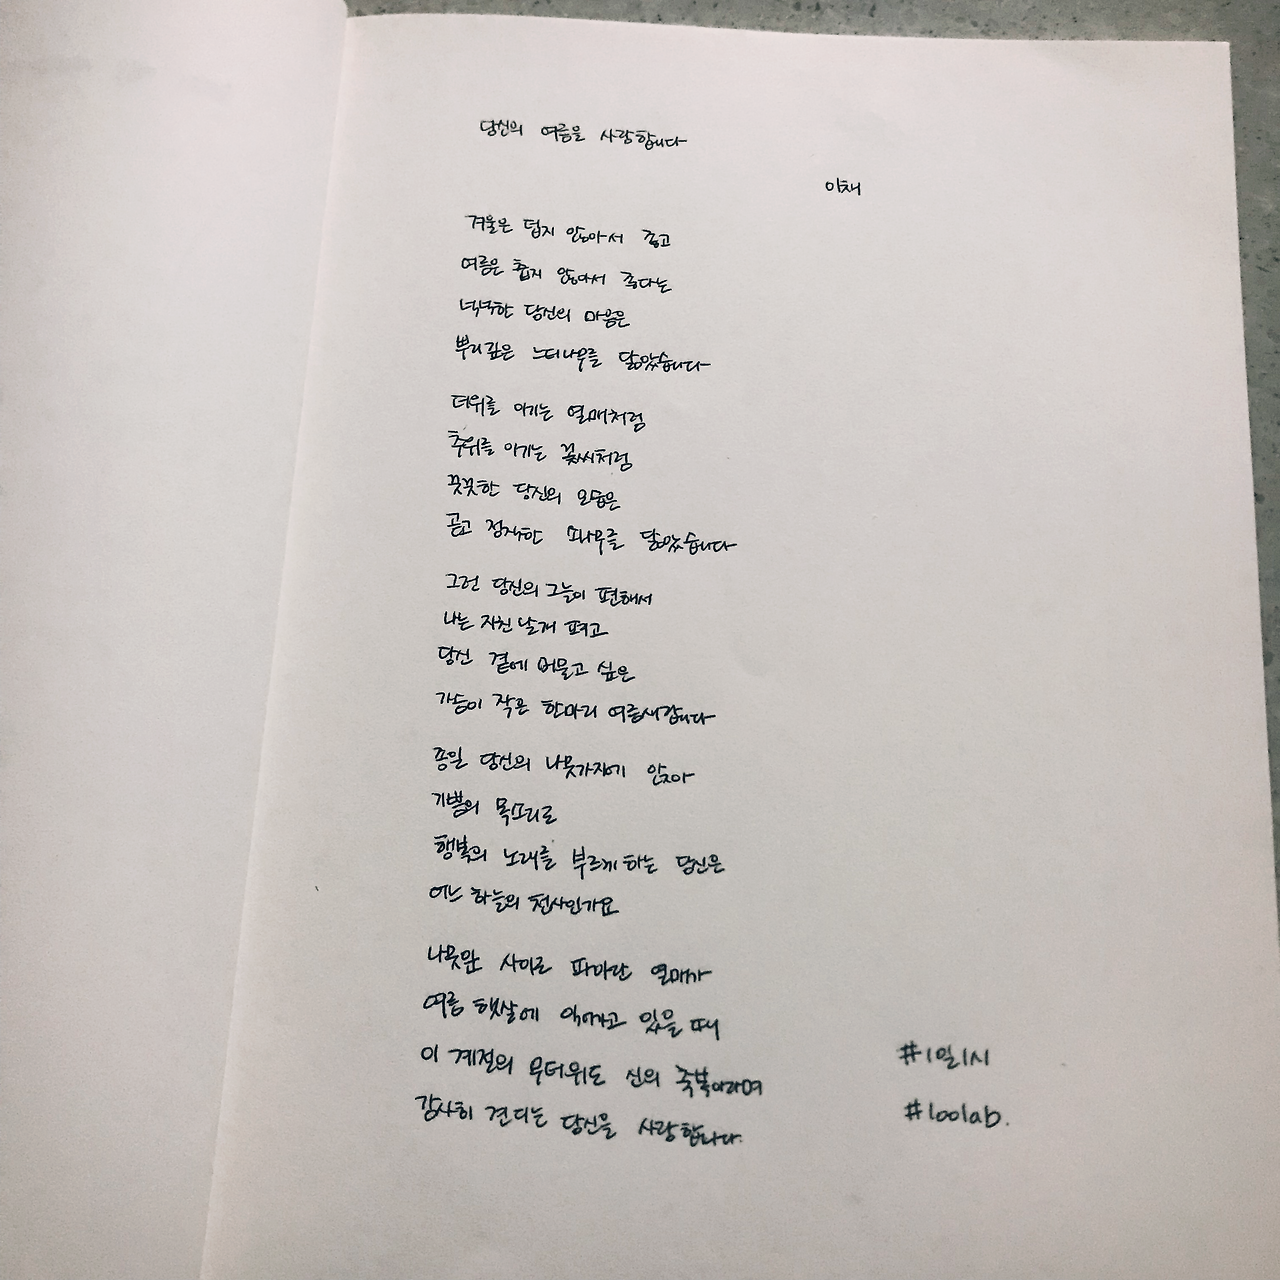 당신의 여름을 사랑합니다
이채
겨울은 덥지 않아서 좋고
여름은 춥지 않아서 좋다는
넉넉한 당신의 마음은
뿌리깊은 느티나무를 닮았습니다
더위를 이기는 열매처럼
추위를 이기는 꽃씨처럼
꿋꿋한 당신의 모습은
곧고 정직한 소나무를 닮았습니다
그런 당신의 그늘이 편해서
나는 지친 날개 펴고
당신 곁에 머물고 싶은
가슴이 작은 한마리 여름새랍니다
종일 당신의 나뭇가지에 앉아
기쁨의 목소리로
행복의 노래를 부르게 하는 당신은
어느 하늘의 천사인가요
나뭇잎 사이로 파아란 열매가
여름 햇살에 익어가고 있을 때
이 계절의 무더위도 신의 축복이라며
감사히 견디는 당신을 사랑합니다.
#1일1시
#100lab.